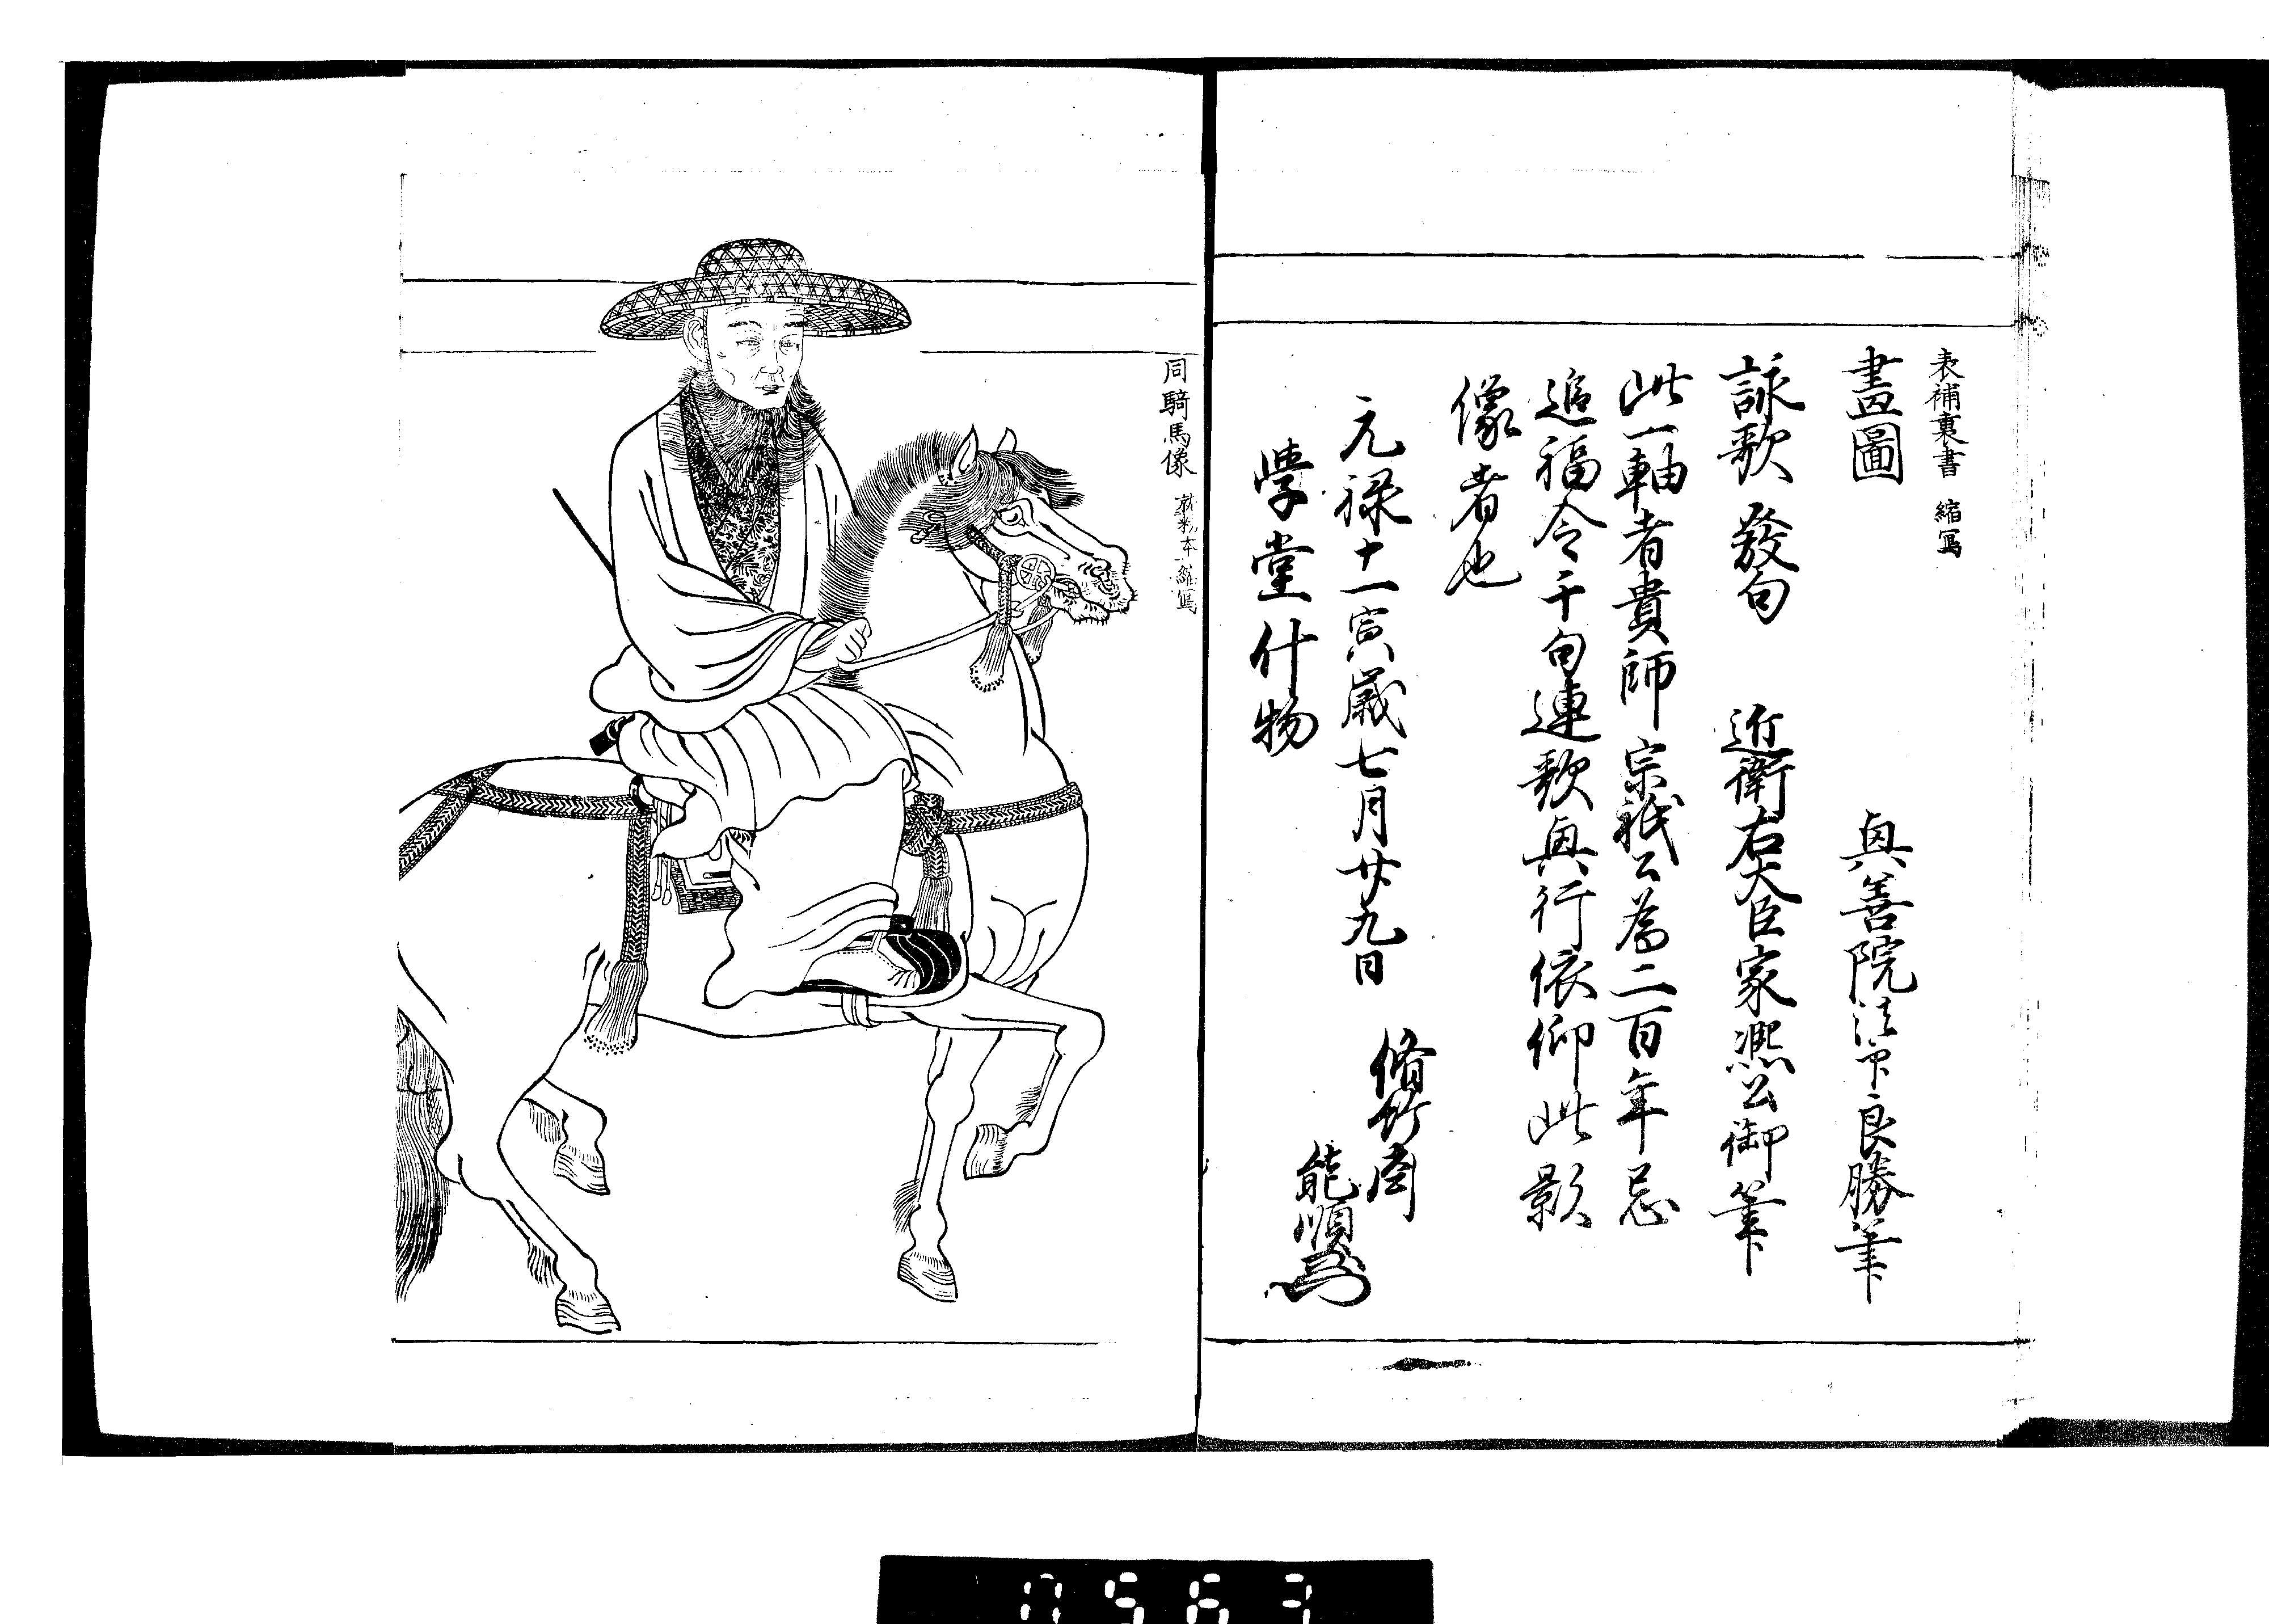 表補裏書 縮寫
畫圖 興善院法印良勝筆
詠歌 發句 近衛右大臣家凞公御筆
此一軸者貴師宗祇公為二百年忌
追福令千句連歌興行依仰此影
像者也
元禄十一寅歳七月廿九日 脩竹園
能順
學堂什物
同騎馬像 就粉本縮寫
0563